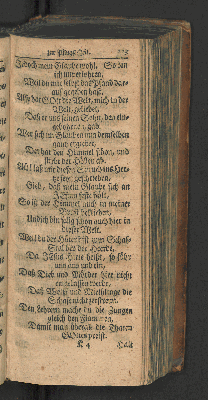 Jedoch mein Glaube wohl. So bin
ich unverlohren,
Weil du mir selbst das Pfand dar-
auf gegeben hast.
Also hat GOtt die Welt, mich in der
Welt, geliebet,
Daß er uns seinen Sohn, den ein-
gebohrnen, gab.
Wer sich im Glauben nun demselben
ganz ergiebet,
Der hat den Himmel schon, und
stirbt der Höllen ab.
Ach laß mir diesen Spruch ins Her-
ze seyn geschrieben.
Gieb, daß mein Glaube sich an
JEsum feste hält,
So ist der Himmel auch in meiner
Brust beklieben,
Und ich bin selig schon auch hier in
dieser Welt.
Weil du der Hüter bist zum Schaf-
Stall der Heerde,
Da JEsus Hirte heißt, so führ
uns aus und ein,
Daß Dieb und Mörder hier nicht
eingelassen werde,
Daß Wölff und Mietlinge die
Schafe nicht zerstreun.
Den Lehrern mache du die Zungen
gleich den Flammen,
Damit man überall die Thaten
GOttes preist.
K 4